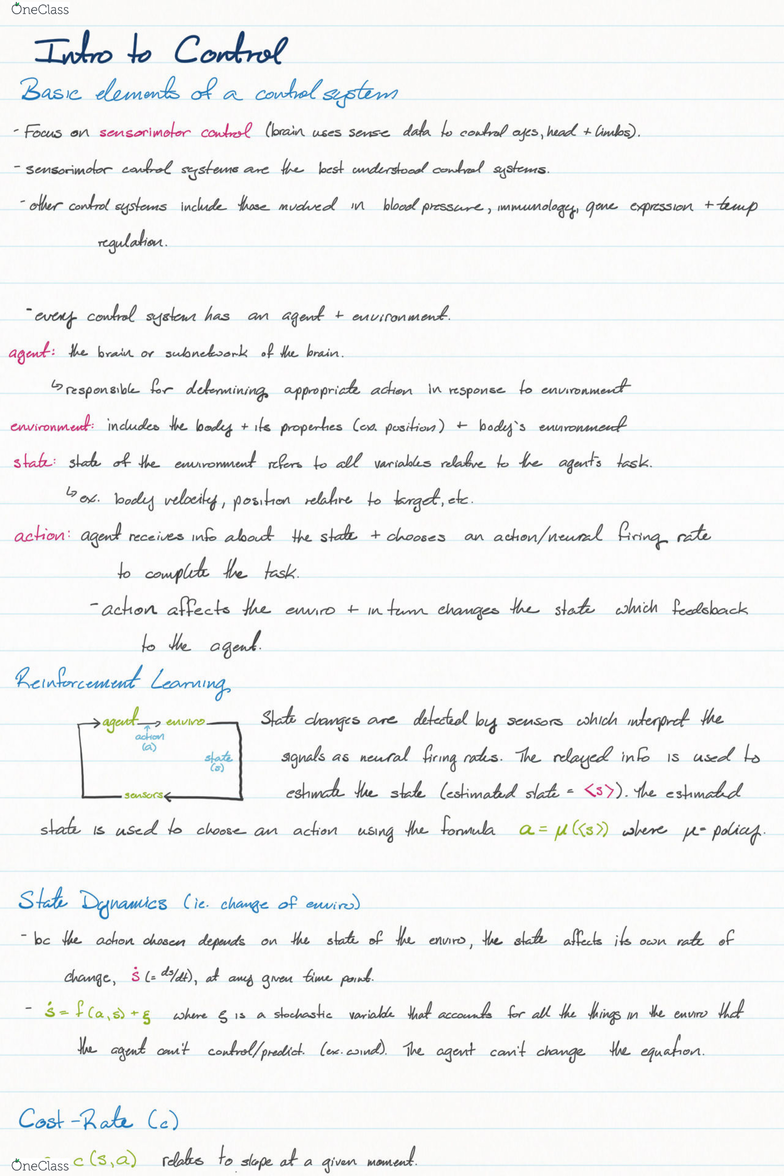 OneClass
Intro to Control
Basic elements of a control system
- Focus on sensorimotor control (brain uses sense data to control eyes, head + limbs).
- sensorimotor control systems are the best understood control systems.
- other control systems include those involved in blood pressure, immunology, gene expression + temp
regulation.
- every control system has an agent + environment.
agent: the brain or subnetwork of the brain.
↳ responsible for determining appropriate action in response to environment
environment: includes the body + its properties (ex. position) + body's environment
state: state of the environment refers to all variables relative to the agent's task.
↳ ex. body velocity, position relative to target, etc.
action: agent receives info about the state + chooses an action/neural firing rate
to complete the task.
- action affects the enviro + in turn changes the state which feedsback
to the agent.
Reinforcement Learning
agent → enviro
action
(a)
state
(s)
sensors
State changes are detected by sensors which interpret the
signals as neural firing rates. The relayed info is used to
estimate the state (estimated state = <s>). The estimated
state is used to choose an action using the formula a = μ(<s>) where μ = policy.
State Dynamics (ie. change of enviro)
- bc the action chosen depends on the state of the enviro, the state affects its own rate of
change, ṡ (= ds/dt), at any given time point.
- ṡ = f(a,s) + ξ where ξ is a stochastic variable that accounts for all the things in the enviro that
the agent can't control/predict. (ex. wind). The agent can't change the equation.
Cost-Rate (c)
- c(s,a) relates to slope at a given moment.
OneClass